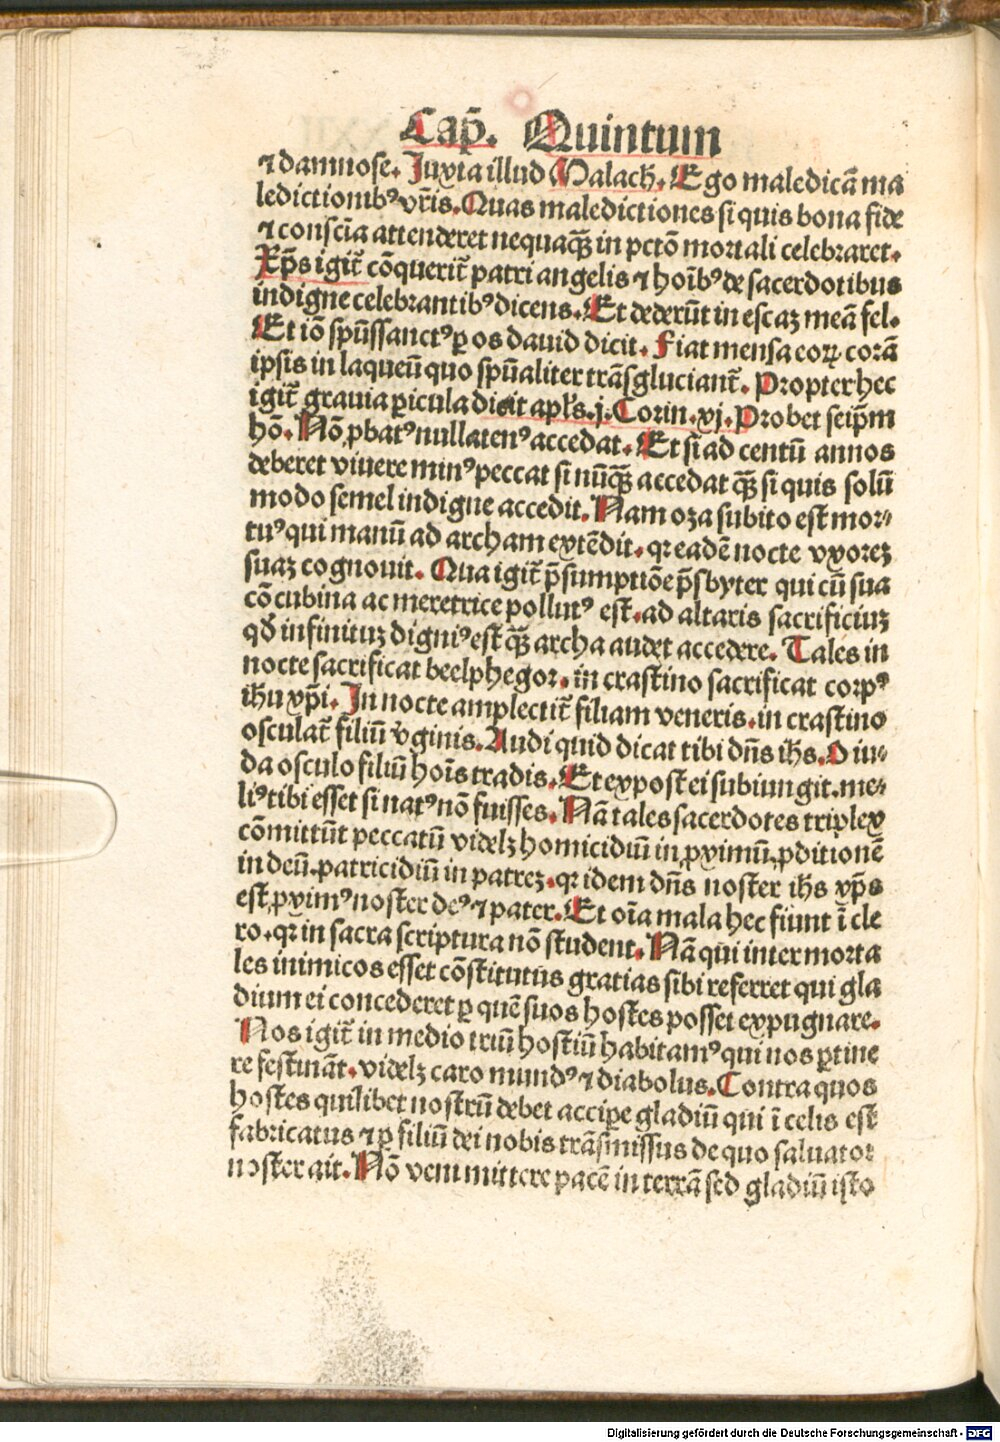 Cap̄. Quintum
⁊ damnose. Juxta illud Malach̄. Ego maledicā ma
ledictionibꝰ vr̄is. Quas maledictiones si quis bona fide
⁊ consciā attenderet nequaq̄ꝫ in pctō mortali celebraret.
Xp̄s igit̄ cōquerit̄ patri angelis ⁊ hoībꝰ de sacerdotibus
indigne celebrantibꝰ dicens. Et dederūt in escaꝫ meā fel.
Et iō spūssanctꝰ ꝑ os dauid dicit. Fiat mensa eoꝝ corā
ipsis in laqueū quo spūaliter trāsgluciant̄. Propter hec
igit̄ grauia ꝑicula dicit apl̄s. j. Corin. xj. Probet seip̄m
hō. Nō ꝓbatꝰ nullatenꝰ accedat. Et si ad centū annos
deberet viuere minꝰ peccat si nūq̄ꝫ accedat q̄ꝫ si quis solū
modo semel indigne accedit. Nam oza subito est mor⸗
tuꝰ qui manū ad archam extēdit. qꝛ eadē nocte vxoreꝫ
suaꝫ cognouit. Qua igit̄ p̄sumptiōe p̄sbyter qui cū sua
cōcubina ac meretrice pollutꝰ est. ad altaris sacrificiuꝫ
qđ infinituꝫ digniꝰ est q̄ꝫ archa audet accedere. Tales in
nocte sacrificat beelphegor. in crastino sacrificat corpꝰ
ihū xp̄i. In nocte amplectit̄ filiam veneris. in crastino
osculat̄ filiū v̄ginis. Audi quid dicat tibi dn̄s ih̄s. O iu⸗
da osculo filiū hoīs tradis. Et expost ei subiungit. me⸗
liꝰ tibi esset si natꝰ nō fuisses. Nā tales sacerdotes triplex
cōmittūt peccatū videlꝫ homicidiū in ꝓximū, ꝓditionē
in deū. patricidiū in patreꝫ. qꝛ idem dn̄s noster ih̄s xp̄s
est ꝓximꝰ noster deꝰ ⁊ pater. Et oīa mala hec fiunt ī cle
ro. qꝛ in sacra scriptura nō student. Nā qui inter morta
les inimicos esset cōstitutus gratias sibi referret qui gla
dium ei concederet ꝑ quē suos hostes posset expugnare.
Nos igit̄ in medio triū hostiū habitamꝰ qui nos ꝑtine
re festināt. videlꝫ caro mundꝰ ⁊ diabolus. Contra quos
hostes quilibet nostrū debet acciꝑe gladiū qui ī celis est
fabricatus ⁊ ꝑ filiū dei nobis trāsmissus de quo saluator
noster ait. Nō veni mittere pacē in terrā sed gladiū isto
Digitalisierung gefördert durch die Deutsche Forschungsgemeinschaft - DFG